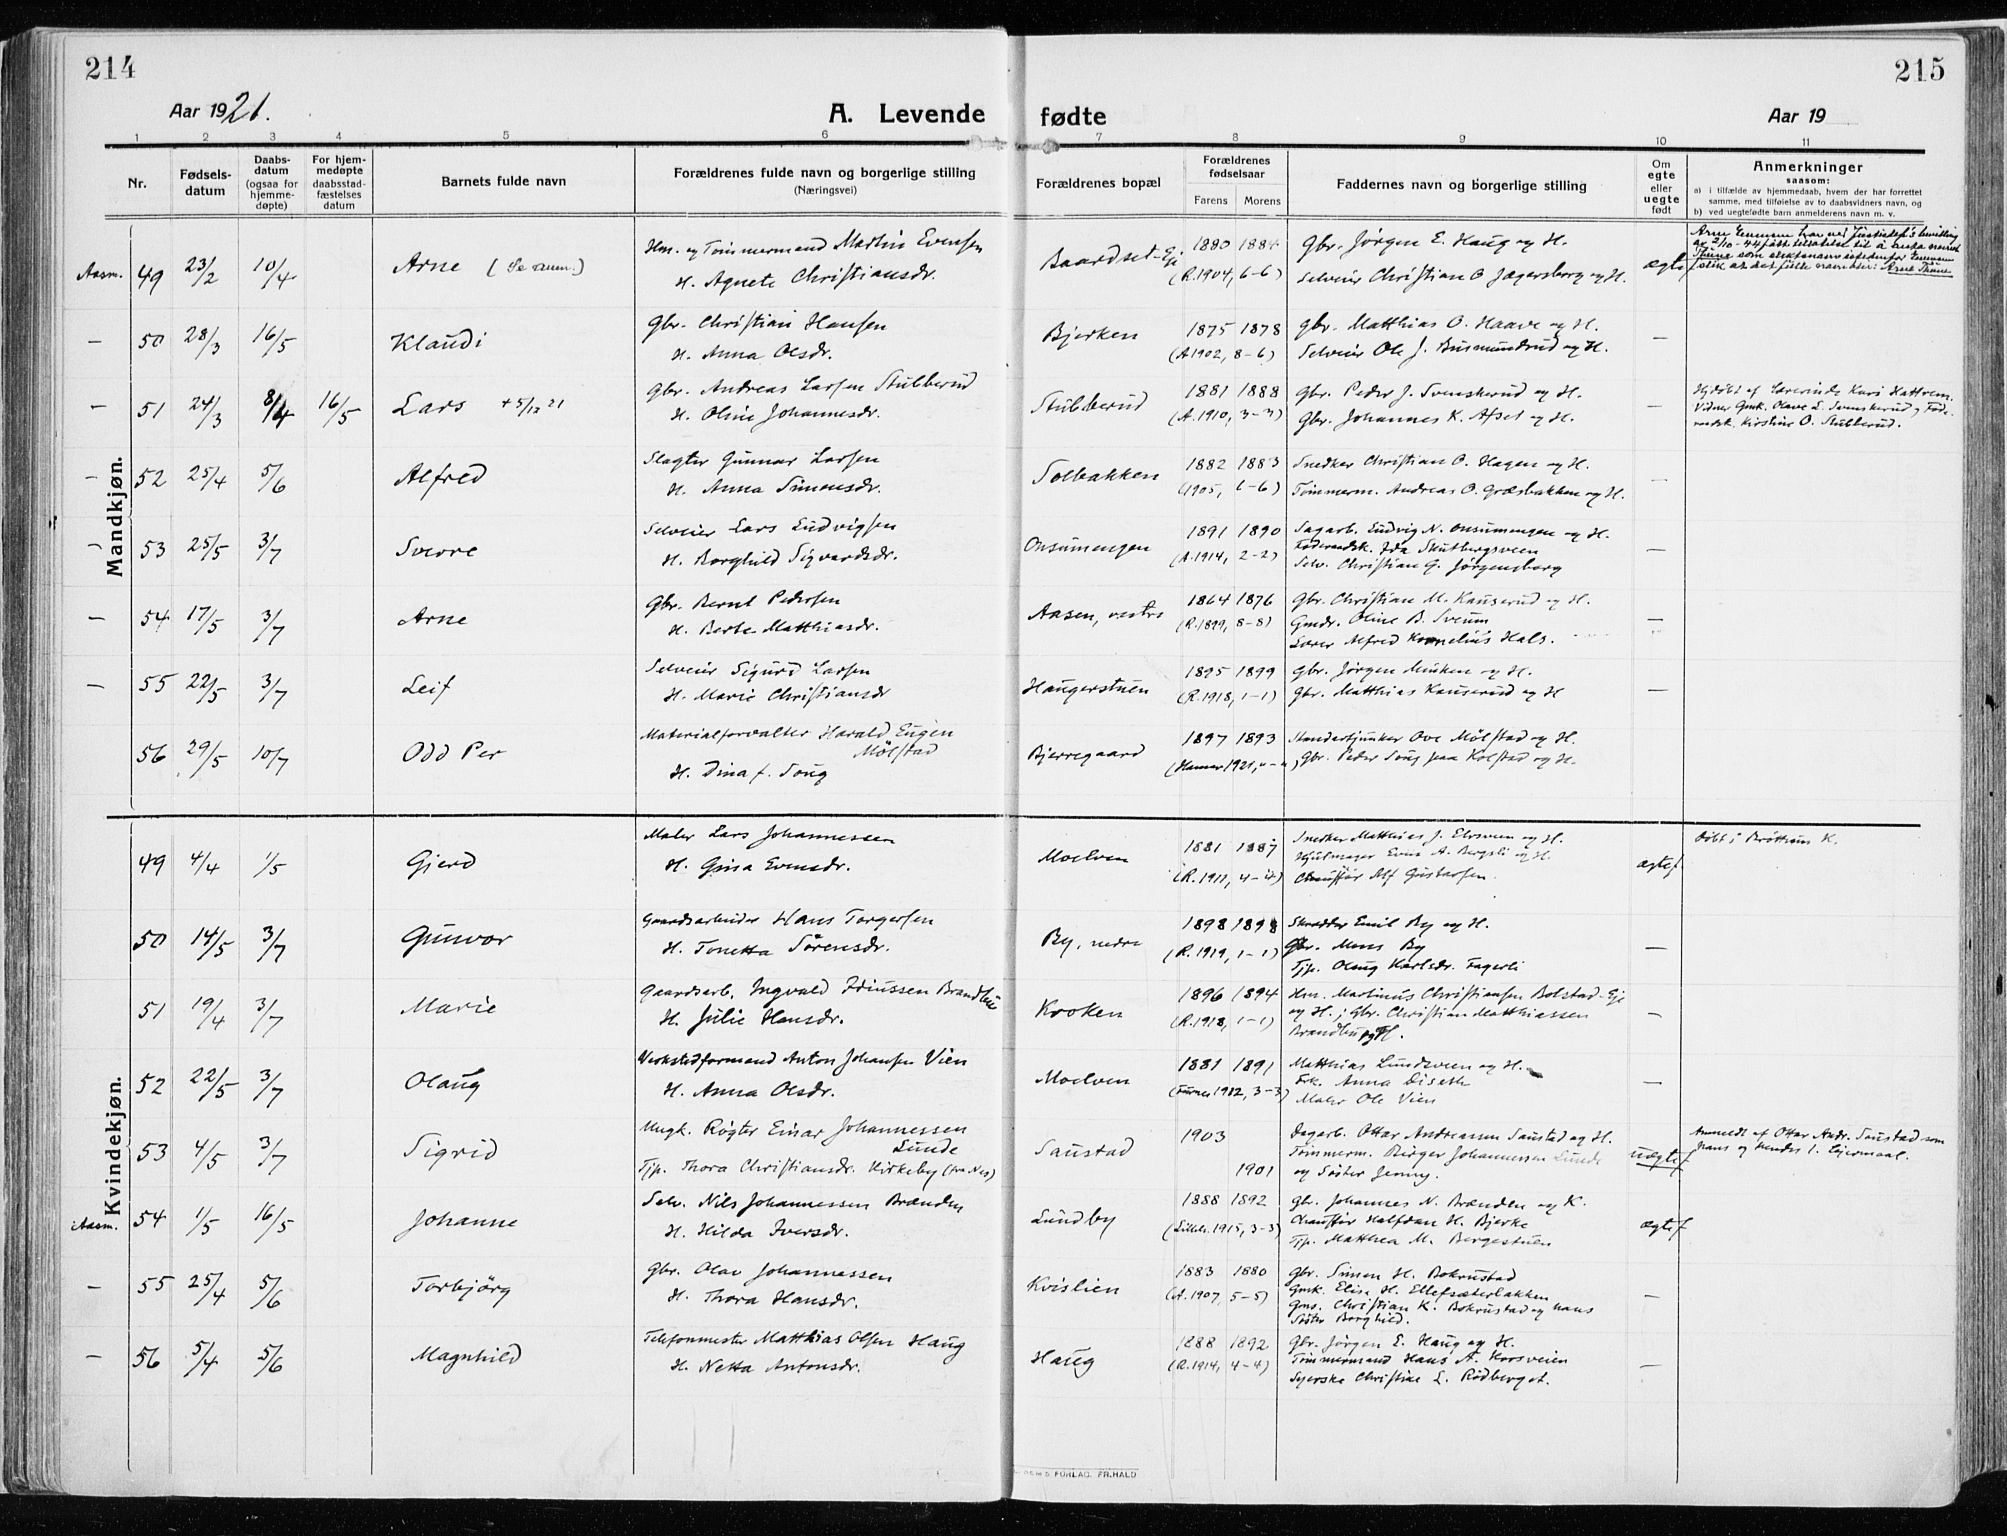 214
215
Aar 1921.
A. Levende fødte
Aar 19
1 2 3 4 5 6 7 8 9 10 11
Nr.
Fødsels-
datum
Daabs-
datum
(ogsaa for
hjemme-
døpte)
For hjem-
medøpte
daabsstad-
fæstelses
datum
Barnets fulde navn
Forældrenes fulde navn og borgerlige stilling
(Næringsvei)
Forældrenes bopæl
Forældrenes
fødselsaar
Farens Morens
Faddernes navn og borgerlige stilling
Om
egte
eller
uegte
født
Anmerkninger
saasom:
a) i tilfælde av hjemmedaab, hvem der har forrettet
samme, med tilføielse av to daabsvidners navn, og
b) ved uegtefødte barn anmelderens navn m. v.
Mandkjøn.
Aasm. 49 23/2 10/4 Arne (Se anm.)
Hm. og Tømmermand Martin Evensen
H. Agnete Christiansdr.
Baardset-Eje
1880 1884
(R. 1904, 6-6)
Gbr. Jørgen E. Haug og H.
Selveier Christian O. Jægersborg og H.
ægtef
Arne Evensen har ved Justisdep's bevilling
av 2/10-44 fått tillatelse til å
Thune som slektsnavn istedenfor Evensen
slik at det fulle navn blir: Arne Thune
— 50 28/3 16/5 Klaudi
Gbr. Christian Hansen
H. Anna Olsdr.
Bjerken
1875 1878
(A. 1902, 8-6)
Gbr. Matthias O. Haave og H.
Selveier Ole J. Busmundrud og H.
—
— 51 24/3 8/4 16/5 Lars + 5/12 21
Gbr. Andreas Larsen Stubberud
H. Oline Johannesdr.
Stubberud
1881 1888
(A. 1910, 3-3)
Gbr. Peder J. Svenskerud og H.
Gbr. Johannes K. Afset og H.
—
Hjdøbt af Lærerinde Kari Hattrem.
Vidner Gmk. Olave L. Svenskerud og Føde-
raadsk. Kirstine O. Stubberud.
— 52 25/4 5/6 Alfred
Slagter Gunnar Larsen
H. Anna Simensdr.
Solbakken
1882 1883
(1905, 6-6)
Snedker Christian O. Hagen og H.
Tømmerm. Andreas O. Græsbakken og H.
—
53 25/5 3/7 Sverre
Selveier Lars Ludvigsen
H. Borghild Sigvardsdr.
Onsumengen
1891 1890
(A. 1914, 2-2)
Sagarb. Ludvig N. Onsumengen og H.
Føderaadsk. Ida Skutbergsveen
Selv. Christian G. Jørgensborg
—
— 54 17/5 3/7 Arne
Gbr. Bernt Pedersen
H. Berte Matthiasdr.
Aasen, vestre
1864 1876
(R. 1899, 8-8)
Gbr. Christian M. Kauserud og H.
Gmdr. Oline B. Sveum
Lærer Alfred Kornelius Hals.
—
— 55 22/5 3/7 Leif
Selveier Sigurd Larsen
H. Marie Christiansdr
Haugerstuen
1895 1899
(R. 1918, 1-1)
Gbr. Jørgen Meiken og H.
Gbr. Matthias Kauserud og H
—
56 29/5 10/7 Odd Per
Materialforvalter Harald Eugen
Mølstad
H. Dina f. Soug
Bjerregaard
1897 1893
(Hamar 1921, "-")
Standartjunker Ove Mølstad og H.
Gbr. Peder Soug paa Kolstad og H.
Kvindekjøn.
49 4/4 1/5 Gjerd
Maler Lars Johannessen
H. Gina Evensdr.
Moelven
1881 1887
(R. 1911, 4-4)
Snekker Matthias J. Elvsveen og H.
Hjulmager Even A. Bergsli og H.
Chauffør Alf Gustavsen
ægtef
Døbt i Brøttum K.
50 14/5 3/7 Gunvor
Gaardsarbeider Hans Torgersen
H. Tonetta Sørensdr.
By, nedre
1898 1898
(R. 1919, 1-1)
Skrædder Emil By og H.
Gbr. Mons By
Tjp. Olaug Karlsdr. Fagerli
—
51 19/4 3/7 Marie
Gaardsarb. Ingvald Idiussen Brandbu
H. Julie Hansdr.
Kroken
1896 1894
(R. 1918, 1-1)
Hm. Martinus Christiansen Bolstad-Eje
og H.; Gbr. Christian Matthiassen
Brandbu og H.
—
52 22/5 3/7 Olaug
Verkstedformand Anton Johansen Vien
H. Anna Olsdr.
Moelven
1881 1891
(Furnes 1912, 3-3)
Matthias Lundsveen og H.
Frk. Anna Diseth
Maler Ole Vien
—
53 4/5 3/7 Sigrid
Ungk. Røgter Einar Johannessen
Lunde
Tjp. Thora Christiansdr. Kirkeby (fra Nes)
Saustad
1903
1901
Dagarb. Ottar Andreassen Saustad og H.
Tømmerm. Birger Johannessen Lunde
og Søster Jenny.
uægtef
Anmeldt af Ottar Andr. Saustad som
hans og hendes 1. Lejermaal.
Aasm. 54 1/5 16/5 Johanne
Selv. Nils Johannessen Brænden
H. Hilda Iversdr.
Lundby
1888 1892
(Lilleh. 1915, 3-3)
Gbr. Johannes N. Brænden og K.
Chauffør Halfdan H. Bjerke
Tjp. Matthea M. Bergestuen
ægtef
— 55 25/4 5/6 Torbjörg
Gbr. Olav Johannessen
H. Thora Hansdr.
Kvislien
1883 1880
(A. 1907, 5-5)
Gbr. Simen H. Bokrustad
Gmk. Elise H. Ellefsæterbakken
Gms. Christian K. Bokrustad og hans
Søster Borghild.
—
— 56 5/4 5/6 Magnhild
Telefonmester Matthias Olsen Haug
H. Netta Antonsdr.
Haug
1888 1892
(R. 1914, 4-4)
Gbr. Jørgen E. Haug og H.
Tømmermand Hans A. Korsveien
Syerske Christine L. Rødberget.
—
FORLAG, FR. HALD